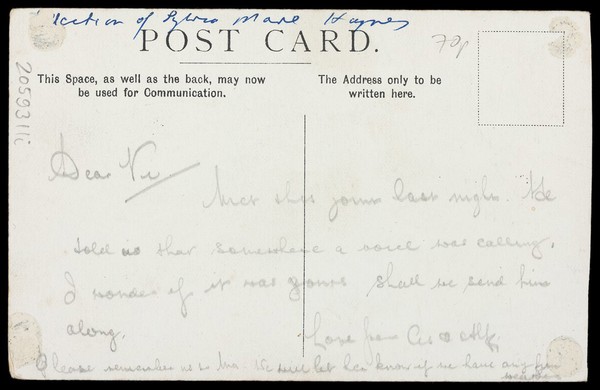 of Sylvia Marie Haynes
POST CARD.
70p
This Space, as well as the back, may now
be used for Communication.
The Address only to be
written here.
20593111i
Dear Vi
Met this last night. He
told us that somewhere a voice was calling.
I wonder if it was yours shall we send him
along.
Love from & Alf.
Please remember us to Ma. We will let her know if we have any